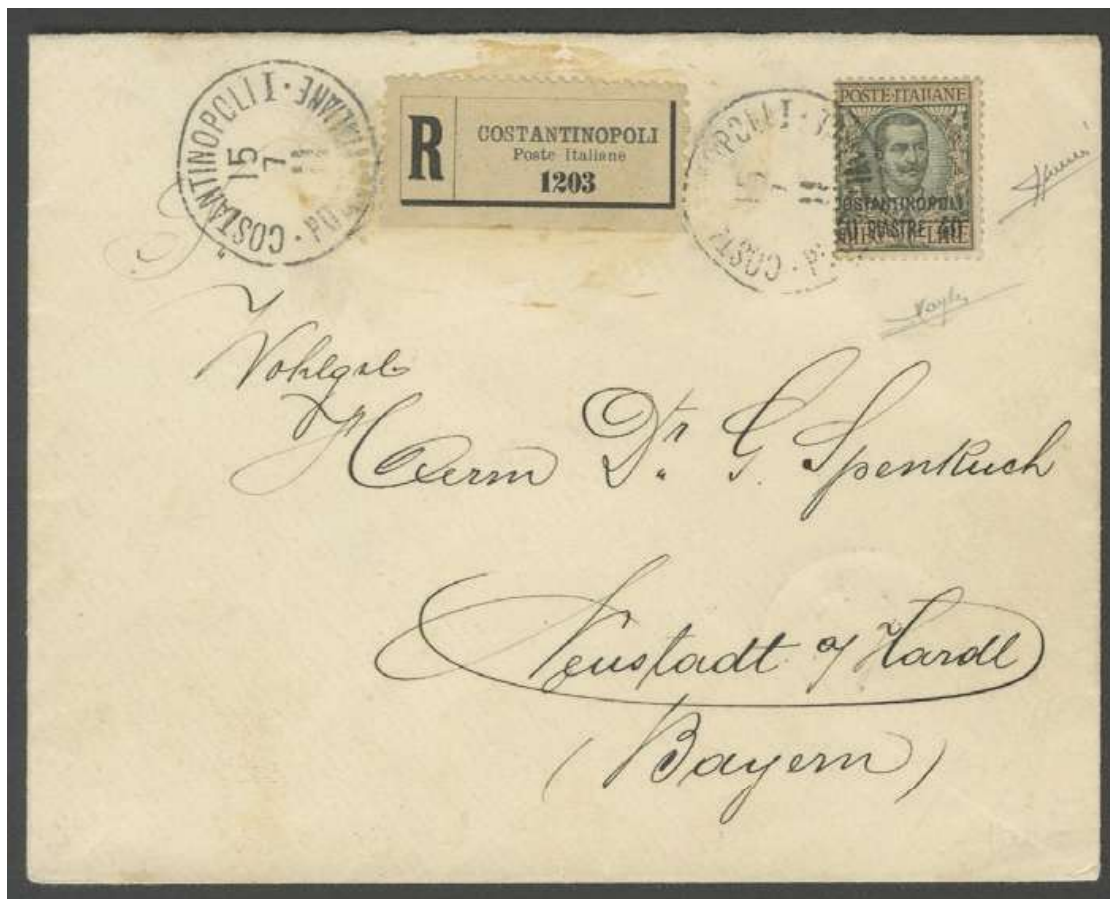 COSTANTINOPOLI I · POSTE ITALIANE ·
15
7
11
R
COSTANTINOPOLI
Poste Italiane
1203
COSTANTINOPOLI I
15
7
11
POSTE·ITALIANE
COSTANTINOPOLI
PIASTRE 40
LIRE
Herrn Dr. G. Spenkuch
Neustadt a/Hardt
(Bayern)